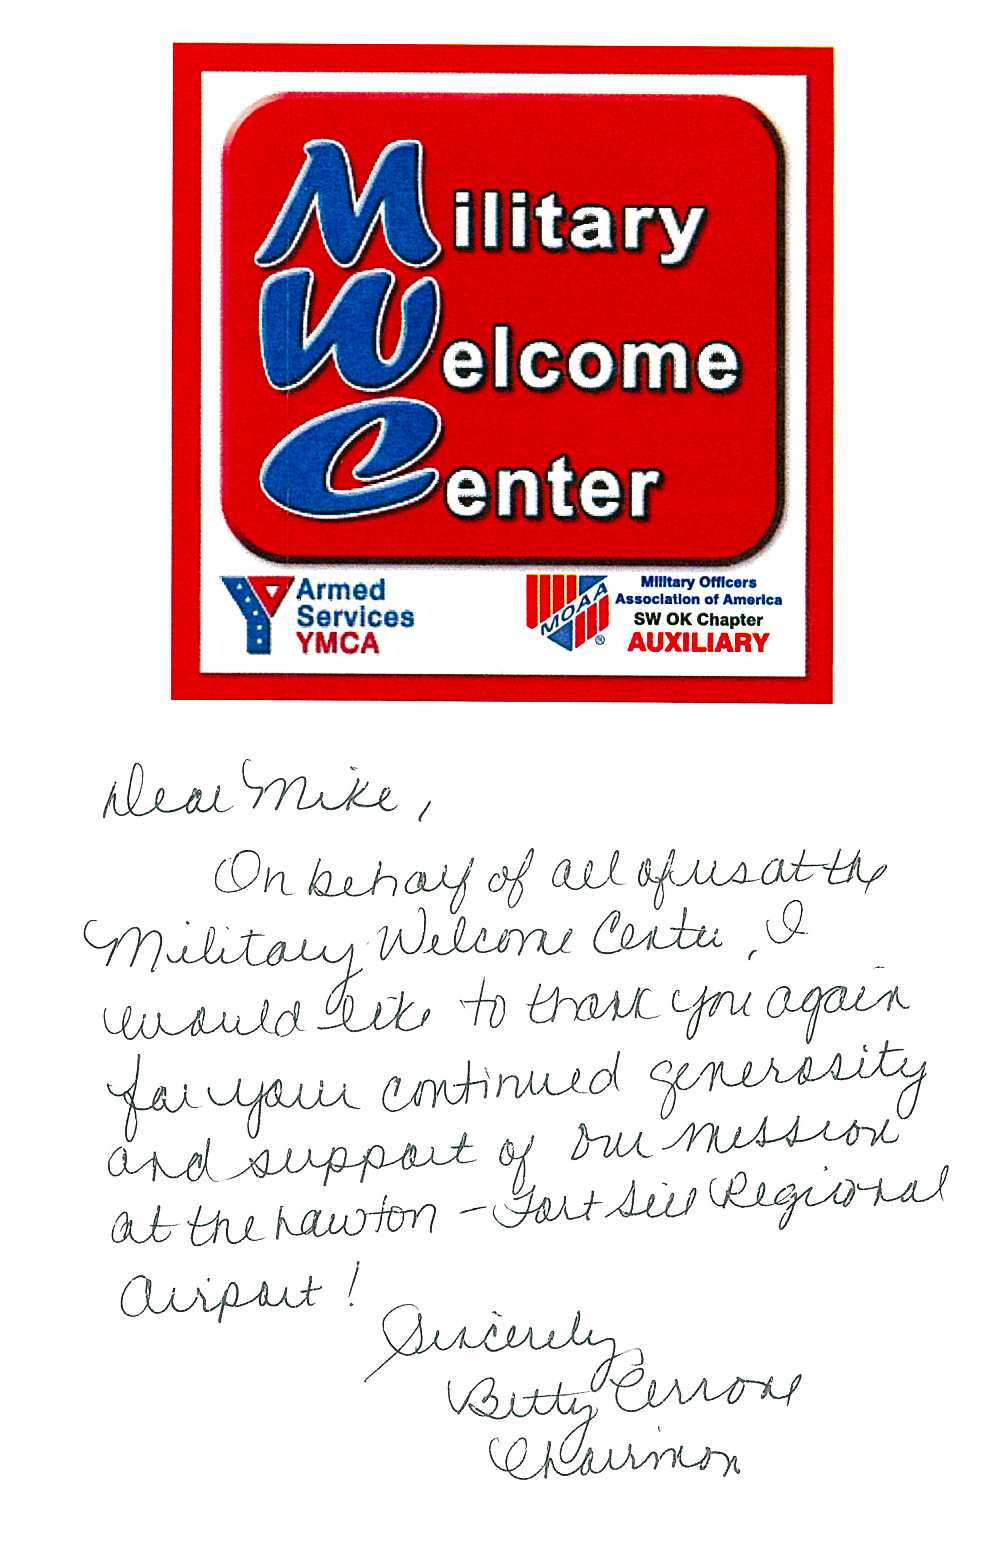 Military
Welcome
Center
Armed
Services
YMCA
MOAA
®
Military Officers
Association of America
SW OK Chapter
AUXILIARY
Dear Mike,
On behalf of all of us at the
Military Welcome Center, I
would like to thank you again
for your continued generosity
and support of our mission
at the Lawton - Fort Sill Regional
Airport!
Sincerely
Betty Cerrone
Chairman